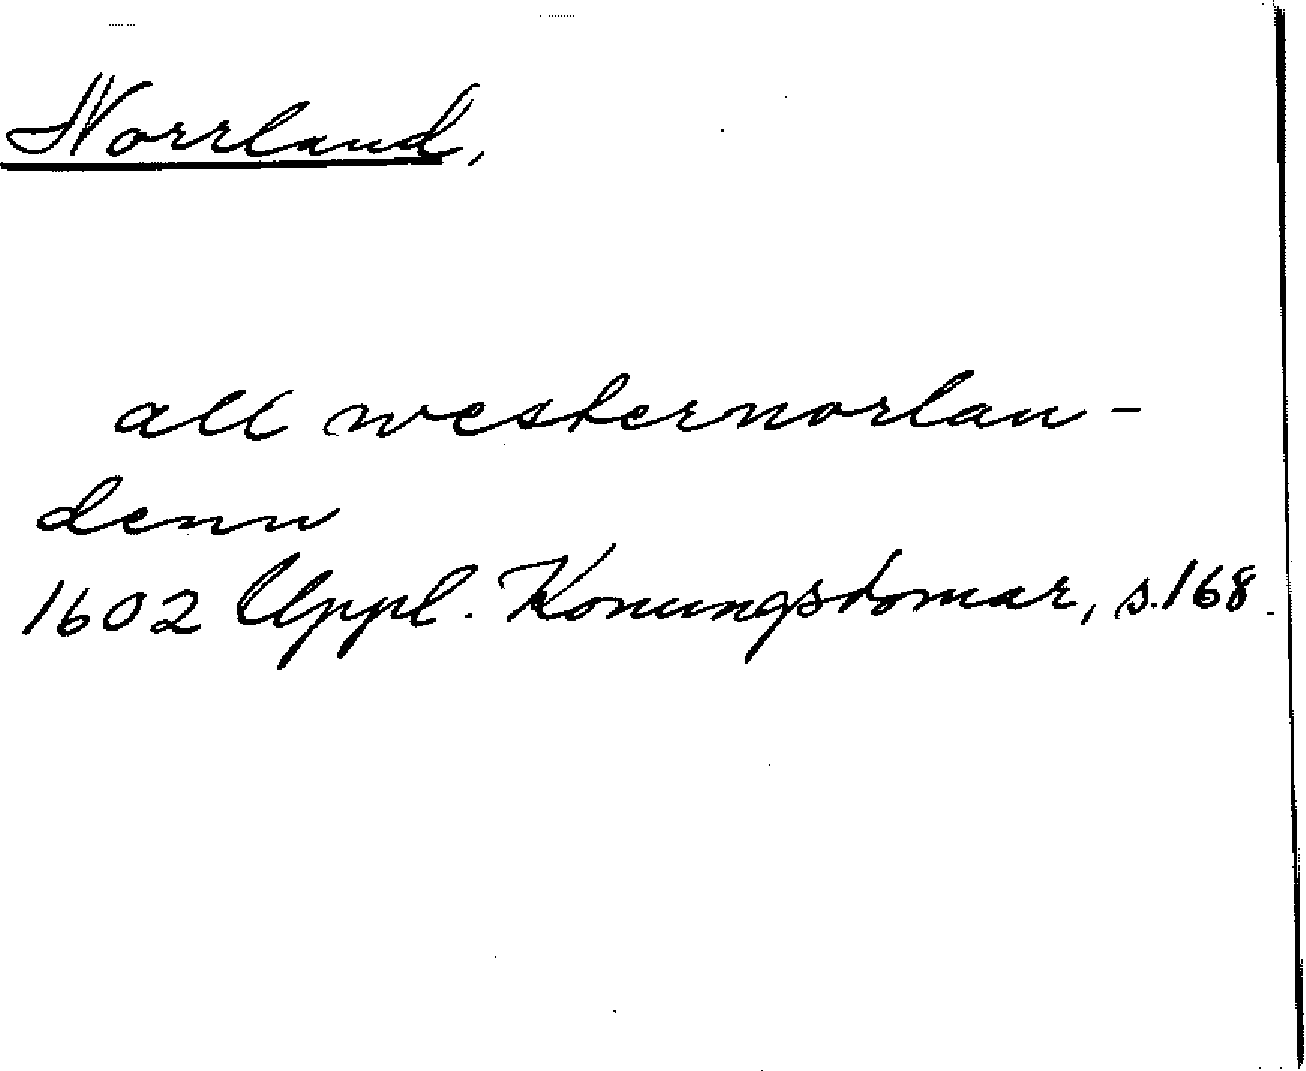 Norrland,
all westernorlan-
denn
1602 Uppl. Konungsdomar, s. 168.